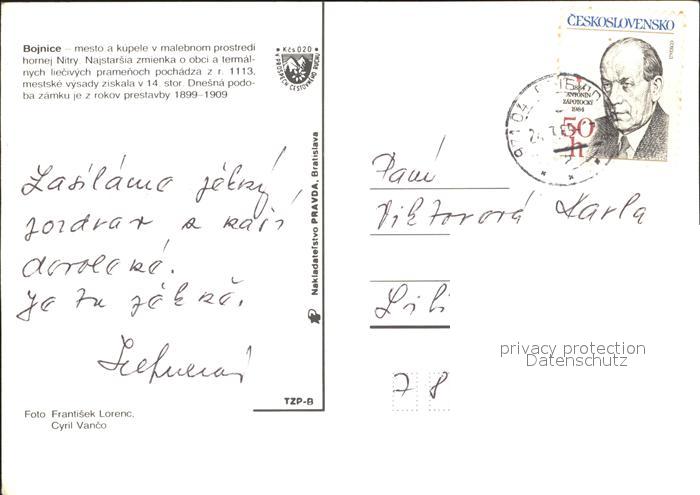 Bojnice – mesto a kúpele v malebnom prostredí
hornej Nitry. Najstaršia zmienka o obci a termál-
nych liečivých prameňoch pochádza z r. 1113,
mestské výsady získala v 14. stor. Dnešná podo-
ba zámku je z rokov prestavby 1899–1909
Kčs 0,20
V PROSPECH CESTOVNÉHO RUCHU
ČESKOSLOVENSKO
1884
ANTONÍN
ZÁPOTOCKÝ
1984
50
h
971 01
Zasíláme pěkný
pozdrav z naší
dovolené.
Je tu pěkně.
Nakladateľstvo PRAVDA, Bratislava
TZP-B
Paní
Viktorová Karla
78
privacy protection
Datenschutz
Foto František Lorenc,
Cyril Vančo